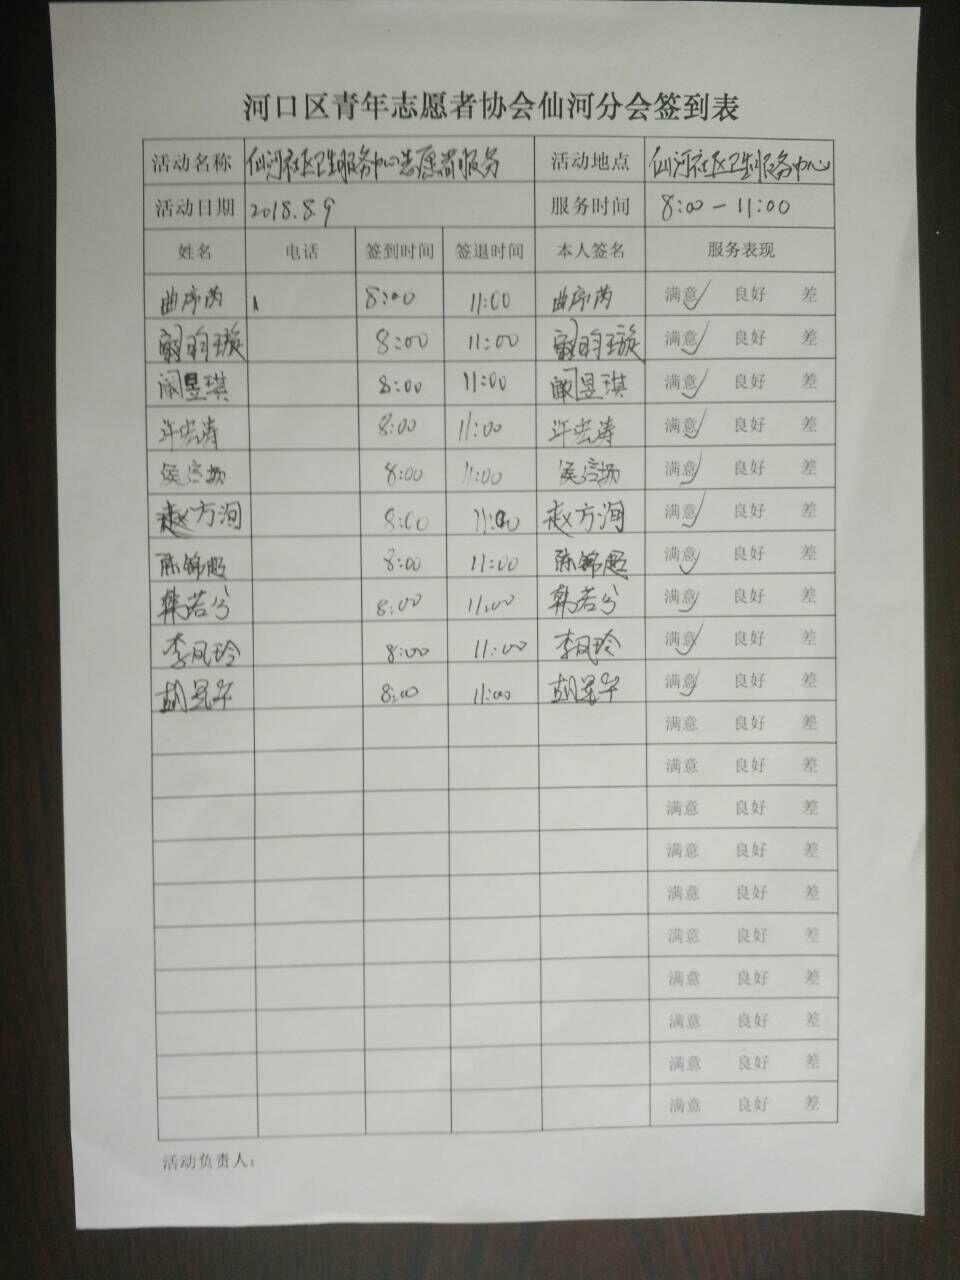 河口区青年志愿者协会仙河分会签到表
活动名称 仙河社区卫生服务中心志愿者服务 活动地点 仙河社区卫生服务中心
活动日期 2018.8.9 服务时间 8:00-11:00
姓名 电话 签到时间 签退时间 本人签名 服务表现
曲序芮 8:00 11:00 曲序芮 满意✓ 良好 差
8:00 11:00 满意✓ 良好 差
阚昱琪 8:00 11:00 阚昱琪 满意✓ 良好 差
许宏涛 8:00 11:00 许宏涛 满意✓ 良好 差
侯 8:00 11:00 侯 满意✓ 良好 差
赵方洵 8:00 11:00 赵方洵 满意✓ 良好 差
陈锦 8:00 11:00 陈锦 满意✓ 良好 差
韩若兮 8:00 11:00 韩若兮 满意✓ 良好 差
李凤玲 8:00 11:00 李凤玲 满意✓ 良好 差
胡 8:00 11:00 胡 满意✓ 良好 差
满意 良好 差
满意 良好 差
满意 良好 差
满意 良好 差
满意 良好 差
满意 良好 差
满意 良好 差
满意 良好 差
满意 良好 差
满意 良好 差
活动负责人：